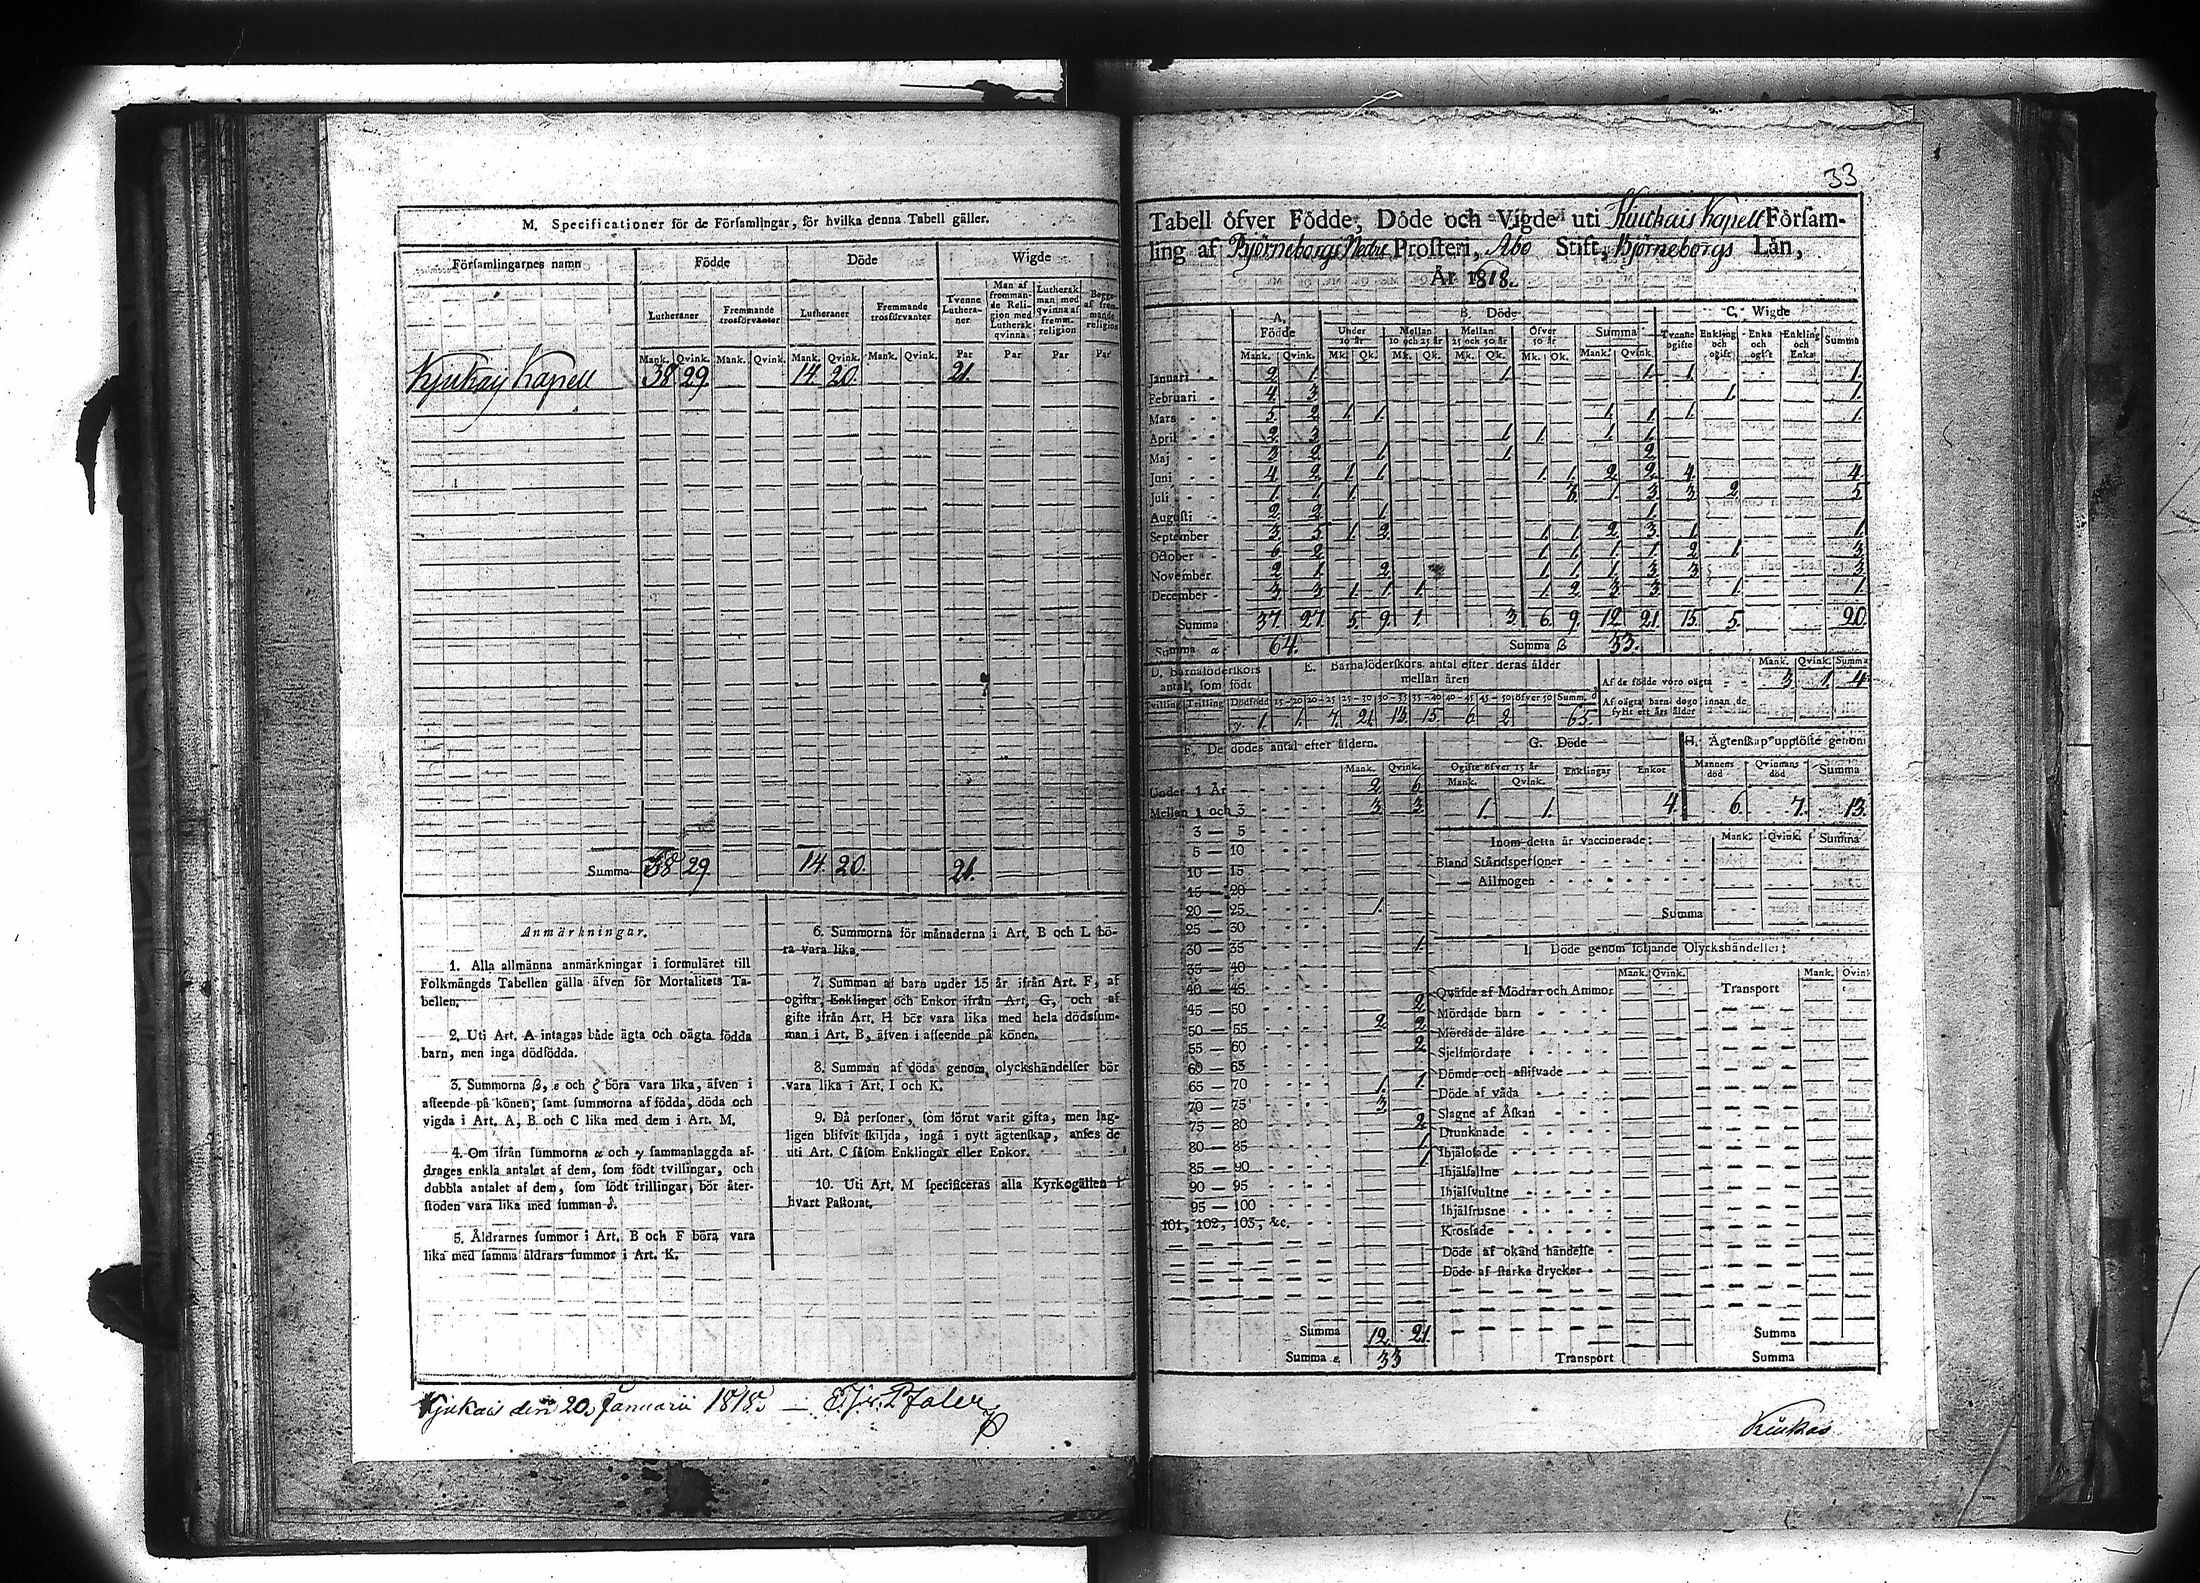 M. Specificationer för de Församlingar, för hvilka denna Tabell gäller.
Församlingarnes namn Födde Döde Wigde
Lutheraner Fremmande trosförvanter Lutheraner Fremmande trosförvanter Tvenne Lutheraner Man af fremmande Religion med Luthersk qvinna Luthersk man med qvinna af fremm. religion Begge af fremmande religion
Mank. Qvink. Mank. Qvink. Mank. Qvink. Mank. Qvink. Par Par Par Par
Kjukais Kapell 38 29. 14. 20. 21.
Summa 38 29. 14. 20. 21.
Anmärkningar.
1. Alla allmänna anmärkningar i formuläret till
Folkmängds Tabellen gälla äfven för Mortalitets Ta-
bellen.
2. Uti Art. A intagas både ägta och oägta födda
barn, men inga dödfödda.
3. Summorna β, ε och ζ böra vara lika, äfven i
afseende på könen; samt summorna af födda, döda och
vigda i Art. A, B och C lika med dem i Art. M.
4. Om ifrån summorna α och γ sammanlaggda af-
drages enkla antalet af dem, som födt tvillingar, och
dubbla antalet af dem, som födt trillingar, bör åter-
stoden vara lika med summan δ.
5. Åldrarnes summor i Art. B och F böra vara
lika med samma åldrars summor i Art. K.
6. Summorna för månaderna i Art. B och L bö-
ra vara lika.
7. Summan af barn under 15 år ifrån Art. F, af
ogifta, Enklingar och Enkor ifrån Art. G, och af
gifte ifrån Art. H bör vara lika med hela dödssum-
man i Art. B, äfven i afseende på könen.
8. Summan af döda genom olyckshändelser bör
vara lika i Art. I och K.
9. Då personer, som förut varit gifta, men lag-
ligen blifvit skiljda, ingå i nytt ägtenskap, anses de
uti Art. C såsom Enklingar eller Enkor.
10. Uti Art. M specificeras alla Kyrkogällen i
hvart Pastorat.
Kjukais den 20. Januarii 1818.
33
Tabell öfver Födde, Döde och Vigde uti Kiukais Kapell Försam-
ling af Björneborgs Nedre Prosteri, Åbo Stift, Björneborgs Län,
År 1818.
A. Födde B. Döde C. Wigde
Under 10 år Mellan 10 och 25 år Mellan 25 och 50 år Öfver 50 år Summa Tvenne ogifte Enkling och ogift Enka och ogift Enkling och Enka Summa
Mank. Qvink. Mk. Qk. Mk. Qk. Mk. Qk. Mk. Qk. Mank. Qvink.
Januari 2. 1. 1. 1. 1. 1.
Februari 4. 3. 1. 1.
Mars 5. 2. 1. 1. 1. 1. 1. 1.
April 2. 3. 1. 1. 1. 1.
Maj 3. 2. 1. 1. 2.
Juni 4. 2. 1. 1. 1. 1. 2. 2. 4. 4.
Juli 1. 1. 1. 3. 1. 3. 3. 2. 5.
Augusti 2. 2. 1. 1.
September 3. 5. 1. 2. 1. 1. 2. 3. 1. 1.
October 6. 2. 1. 1. 1. 1. 2. 1. 3.
November 2. 1. 2. 1. 1. 1. 3. 3. 3.
December 3. 3. 1. 1. 1. 1. 2. 3. 3. 1. 1.
Summa 37. 27. 5. 9. 1. 3. 6. 9. 12. 21. 15. 5. 20.
Summa α 64. Summa β 33.
D. Barnaföderskors antal, som födt E. Barnaföderskors antal efter deras ålder mellan åren Mank. Qvink. Summa
Tvilling Trilling Dödfödde 15-20 20-25 25-30 30-35 35-40 40-45 45-50 öfver 50 Summ. δ
γ 1. 1. 7. 21. 13. 15. 6. 2. 65.
Af de födde voro oägta 3. 1. 4.
Af oägta barn dogo innan de fyllt ett års ålder
F. De dödes antal efter åldern.
Mank. Qvink.
Under 1 År 2. 6.
Mellan 1 och 3 3. 3.
3 — 5
5 — 10
10 — 15
15 — 20
20 — 25 1.
25 — 30
30 — 35 1.
35 — 40
40 — 45
45 — 50 2.
50 — 55 2. 2.
55 — 60 2.
60 — 65
65 — 70 1. 1.
70 — 75 3.
75 — 80 2.
80 — 85 1
85 — 90 1
90 — 95
95 — 100
101, 102, 103, &c.
Summa 12. 21.
Summa ε. 33
G. Döde
Ogifte öfver 15 år Enklingar Enkor
Mank. Qvink.
1. 1. 4.
H. Ägtenskap upplöste genom
Mannens död Qvinnans död Summa
6. 7. 13.
Inom detta år vaccinerade: Mank. Qvink. Summa
Bland Ståndspersoner
— — Allmogen
Summa
I. Döde genom följande Olyckshändelser:
Mank. Qvink. Mank. Qvink
Qväfde af Mödrar och Ammor Transport
Mördade barn
Mördade äldre
Sjelfmördare
Dömde och aflifvade
Döde af våda
Slagne af Åskan
Drunknade
Ihjälosade
Ihjälfallne
Ihjälsvultne
Ihjälfrusne
Krossade
Döde af okänd händelse
Döde af starka drycker
Summa
Transport Summa
Kiukas